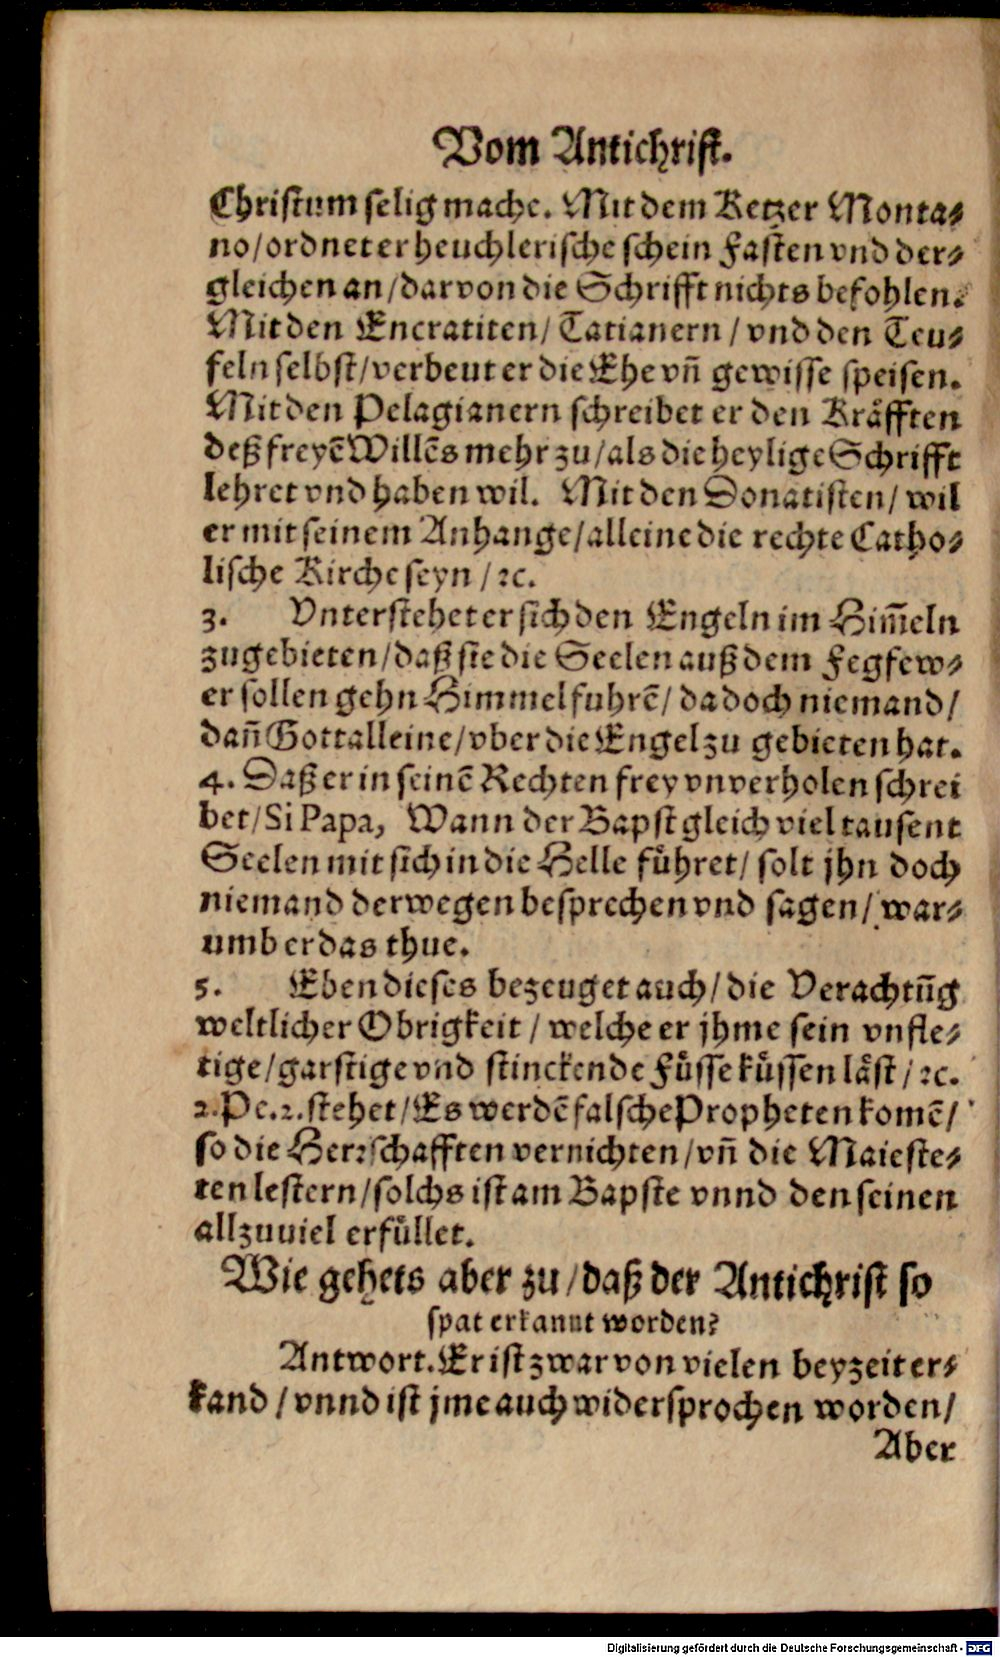 Vom Antichrist.
Christum selig mache. Mit dem Ketzer Monta-
no/ordnet er heuchlerische schein Fasten vnd der-
gleichen an/darvon die Schrifft nichts befohlen.
Mit den Encratiten/ Tatianern/ vnd den Teu-
feln selbst/verbeut er die Ehe vñ gewisse speisen.
Mit den Pelagianern schreibet er den Kräfften
deß freyẽ Willẽs mehr zu/als die heylige Schrifft
lehret vnd haben wil. Mit den Donatisten/ wil
er mit seinem Anhange/alleine die rechte Catho-
lische Kirche seyn /ꝛc.
3. Vnterstehet er sich den Engeln im Him̃eln
zugebieten/daß sie die Seelen auß dem Fegfew-
er sollen gehn Himmel fuhrẽ/ da doch niemand/
dañ Gott alleine/vber die Engel zu gebieten hat.
4. Daß er in seinẽ Rechten frey vnverholen schrei
bet/Si Papa, Wann der Bapst gleich viel tausent
Seelen mit sich in die Helle führet/ solt jhn doch
niemand derwegen besprechen vnd sagen/ war-
umb er das thue.
5. Eben dieses bezeuget auch/ die Verachtũg
weltlicher Obrigkeit/ welche er jhme sein vnfle-
tige/garstige vnd stinckende Füsse küssen läst/ꝛc.
2.Pe.2.stehet/Es werdẽ falsche Propheten komẽ/
so die Herꝛschafften vernichten/vñ die Maieste-
ten lestern/solchs ist am Bapste vnnd den seinen
allzuuiel erfüllet.
Wie gehets aber zu/daß der Antichrist so
spat erkannt worden?
Antwort. Er ist zwar von vielen beyzeit er-
kand/vnnd ist jme auch widersprochen worden/
Aber
Digitalisierung gefördert durch die Deutsche Forschungsgemeinschaft - DFG